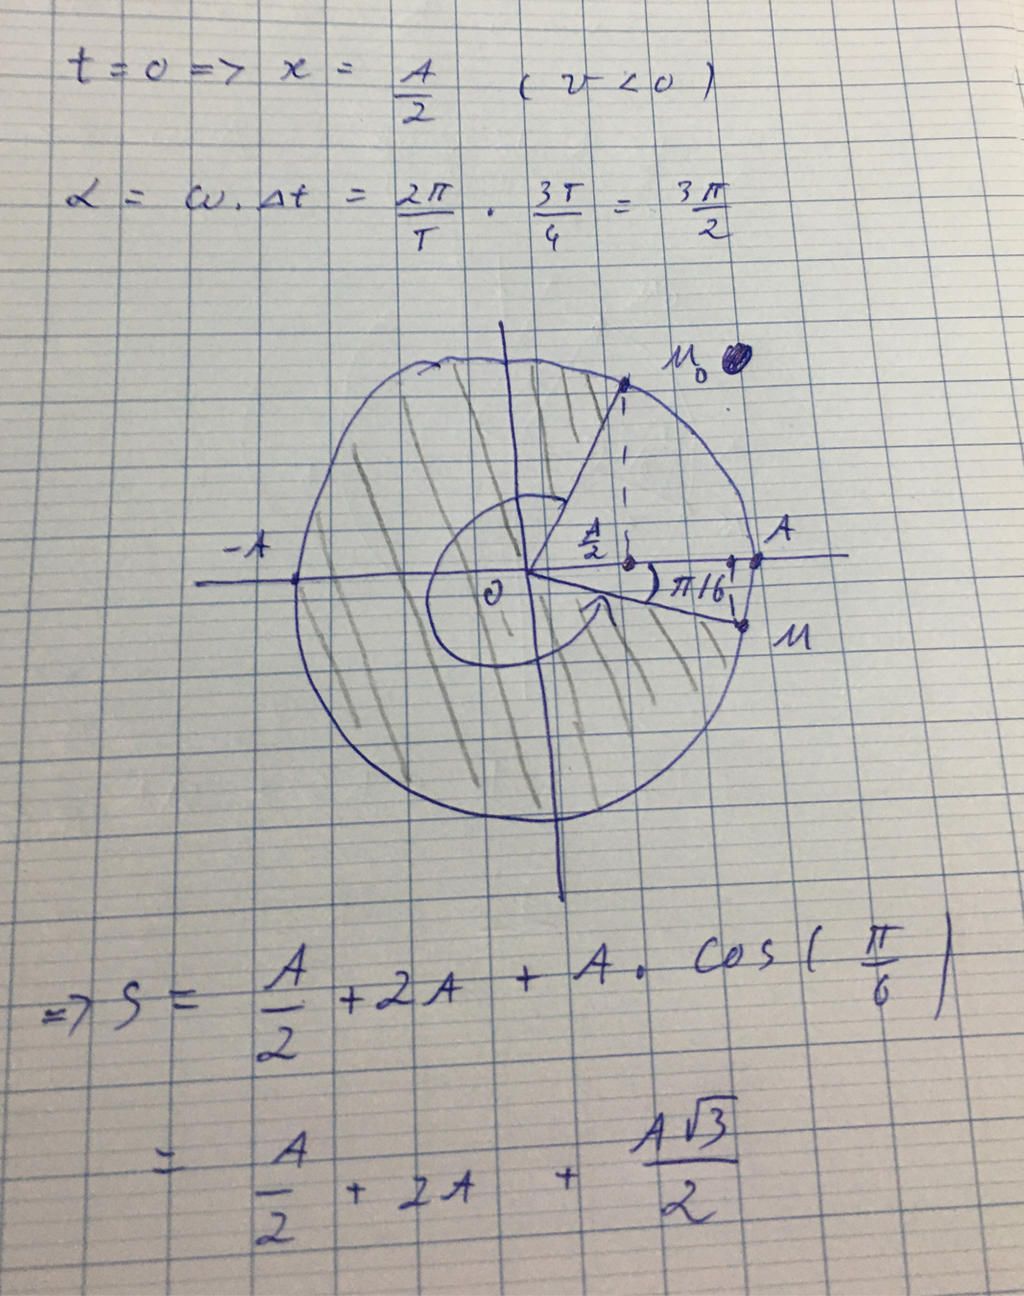 t = 0 => x = A/2 (v < 0)
α = ω. Δt = 2π/T . 3T/4 = 3π/2
M₀
-A
A/2
A
O
π/6
M
=> S = A/2 + 2A + A. cos(π/6)
= A/2 + 2A + A√3/2